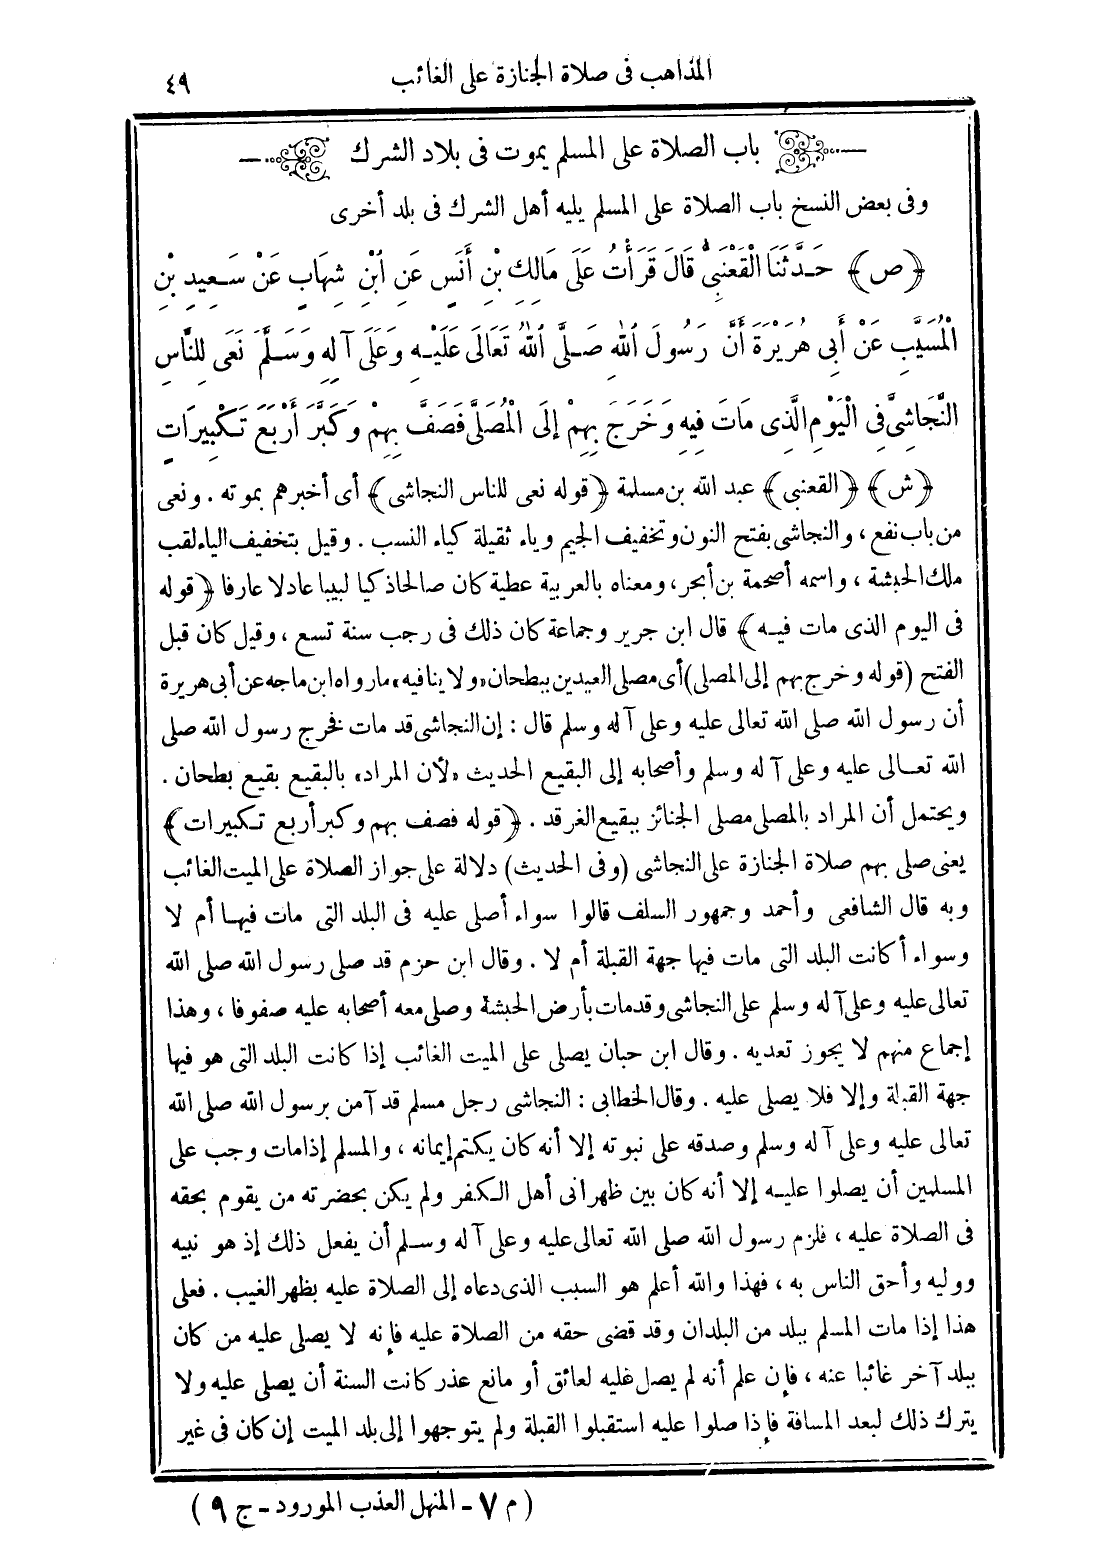 المذاهب فى صلاة الجنازة على الغائب ٤٩
باب الصلاة على المسلم يموت فى بلاد الشرك
وفى بعض النسخ باب الصلاة على المسلم يليه أهل الشرك فى بلد أخرى
﴿ص﴾ حَدَّثَنَا الْقَعْنَبِىُّ قَالَ قَرَأْتُ عَلَى مَالِكِ بْنِ أَنَسٍ عَنِ ابْنِ شِهَابٍ عَنْ سَعِيدِ بْنِ
الْمُسَيَّبِ عَنْ أَبِى هُرَيْرَةَ أَنَّ رَسُولَ اللهِ صَلَّى اللهُ تَعَالَى عَلَيْهِ وَعَلَى آلِهِ وَسَلَّمَ نَعَى لِلنَّاسِ
النَّجَاشِىَّ فِى الْيَوْمِ الَّذِى مَاتَ فِيهِ وَخَرَجَ بِهِمْ إِلَى الْمُصَلَّى فَصَفَّ بِهِمْ وَكَبَّرَ أَرْبَعَ تَكْبِيرَاتٍ
﴿ش﴾ ﴿القعنبى﴾ عبد الله بن مسلمة ﴿قوله نعى للناس النجاشى﴾ أى أخبرهم بموته . ونعى
من باب نفع ، والنجاشى بفتح النون وتخفيف الجيم وياء ثقيلة كياء النسب . وقيل بتخفيف الياء لقب
ملك الحبشة ، واسمه أصحمة بن أبحر ، ومعناه بالعربية عطية كان صالحا ذكيا لبيبا عادلا عارفا ﴿قوله
فى اليوم الذى مات فيه﴾ قال ابن جرير وجماعة كان ذلك فى رجب سنة تسع ، وقيل كان قبل
الفتح (قوله وخرج بهم إلى المصلى) أى مصلى العيدين ببطحان «ولا ينافيه» ما رواه ابن ماجه عن أبى هريرة
أن رسول الله صلى الله تعالى عليه وعلى آله وسلم قال : إن النجاشى قد مات فخرج رسول الله صلى
الله تعالى عليه وعلى آله وسلم وأصحابه إلى البقيع الحديث «لأن المراد» بالبقيع بقيع بطحان .
ويحتمل أن المراد بالمصلى مصلى الجنائز ببقيع الغرقد . ﴿قوله فصف بهم وكبر أربع تكبيرات﴾
يعنى صلى بهم صلاة الجنازة على النجاشى (وفى الحديث) دلالة على جواز الصلاة على الميت الغائب
وبه قال الشافعى وأحمد وجمهور السلف قالوا سواء أصلى عليه فى البلد التى مات فيها أم لا
وسواء أكانت البلد التى مات فيها جهة القبلة أم لا . وقال ابن حزم قد صلى رسول الله صلى الله
تعالى عليه وعلى آله وسلم على النجاشى وقد مات بأرض الحبشة وصلى معه أصحابه عليه صفوفا ، وهذا
إجماع منهم لا يجوز تعديه . وقال ابن حبان يصلى على الميت الغائب إذا كانت البلد التى هو فيها
جهة القبلة وإلا فلا يصلى عليه . وقال الخطابى : النجاشى رجل مسلم قد آمن برسول الله صلى الله
تعالى عليه وعلى آله وسلم وصدقه على نبوته إلا أنه كان يكتم إيمانه ، والمسلم إذا مات وجب على
المسلمين أن يصلوا عليه إلا أنه كان بين ظهرانى أهل الكفر ولم يكن بحضرته من يقوم بحقه
فى الصلاة عليه ، فلزم رسول الله صلى الله تعالى عليه وعلى آله وسلم أن يفعل ذلك إذ هو نبيه
ووليه وأحق الناس به ، فهذا والله أعلم هو السبب الذى دعاه إلى الصلاة عليه بظهر الغيب . فعلى
هذا إذا مات المسلم ببلد من البلدان وقد قضى حقه من الصلاة عليه فإنه لا يصلى عليه من كان
ببلد آخر غائبا عنه ، فإن علم أنه لم يصل عليه لعائق أو مانع عذر كانت السنة أن يصلى عليه ولا
يترك ذلك لبعد المسافة فإذا صلوا عليه استقبلوا القبلة ولم يتوجهوا إلى بلد الميت إن كان فى غير
(م ٧ - المنهل العذب المورود - ج ٩)